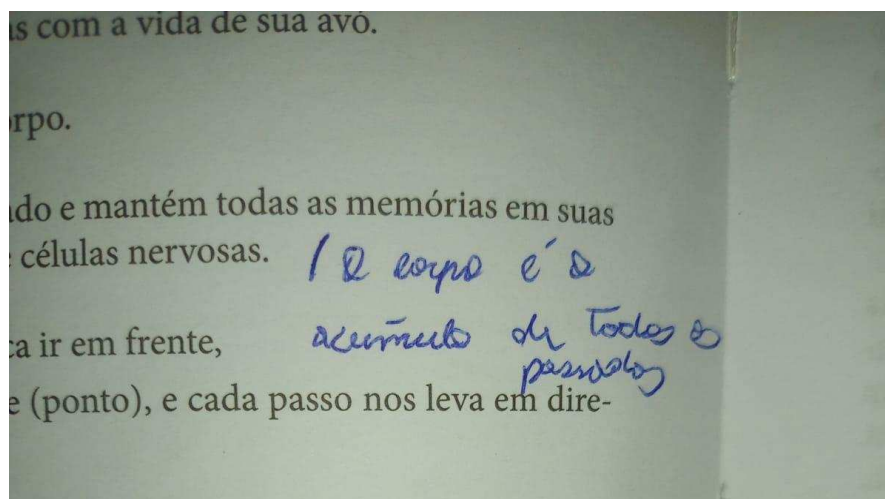 s com a vida de sua avó.
rpo.
do e mantém todas as memórias em suas
células nervosas. / O corpo é o
ca ir em frente, acúmulo de todos os
passados
e (ponto), e cada passo nos leva em dire-